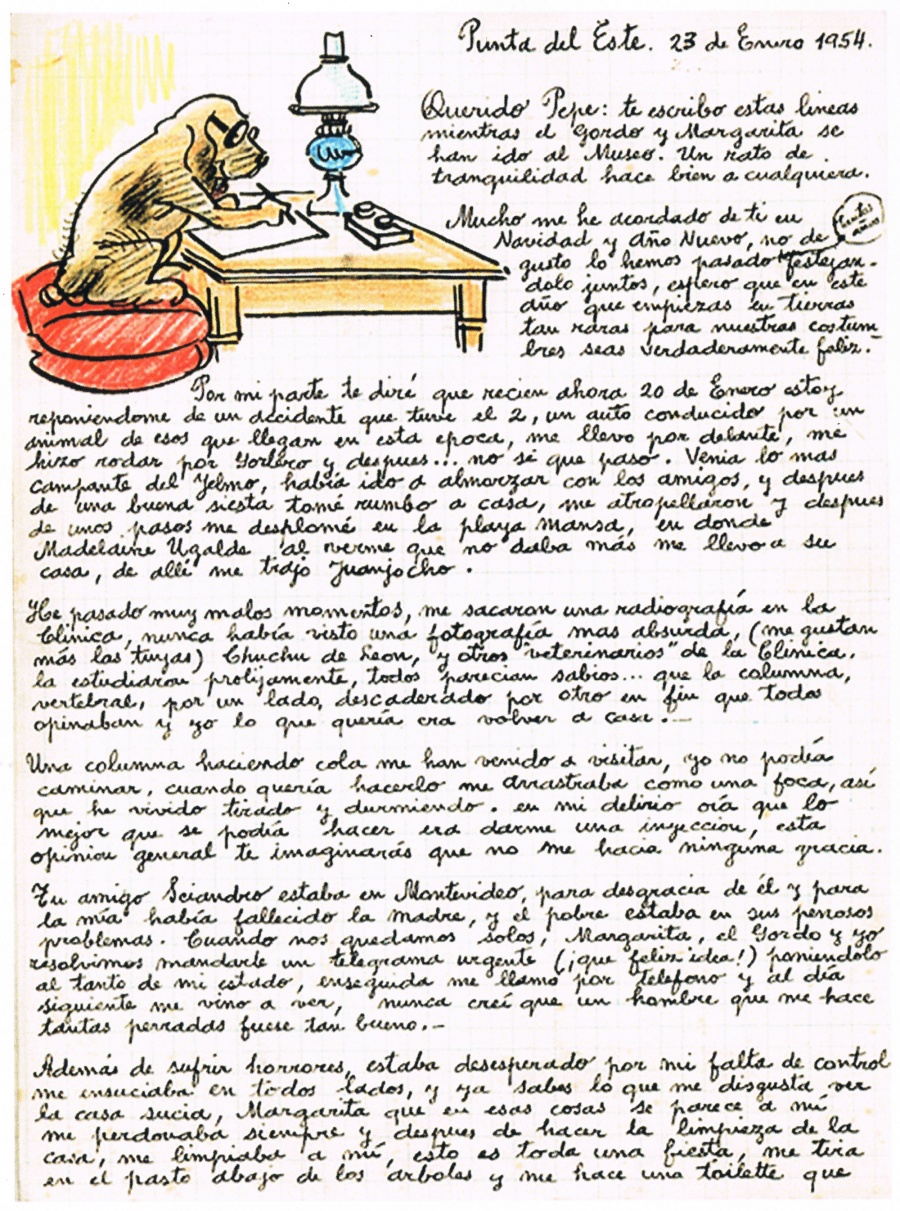 Punta del Este. 23 de Enero 1954.
Querido Pepe: te escribo estas lineas
mientras el Gordo y Margarita se
han ido al Museo. Un rato de
tranquilidad hace bien a cualquiera.
Mucho me he acordado de ti en
Navidad y Año Nuevo, no de
gusto lo hemos pasado festejan-
tantos
años
dolo juntos, espero que en este
año que empiezas en tierras
tan raras para nuestras costum
bres seas verdaderamente feliz.-
Por mi parte te diré que recien ahora 20 de Enero estoy
reponiendome de un accidente que tuve el 2, un auto conducido por un
animal de esos que llegan en esta epoca, me llevo por delante, me
hizo rodar por Gorlero y despues... no sé que paso. Venia lo mas
campante del Yelmo, había ido a almorzar con los amigos, y despues
de una buena siesta tomé rumbo a casa, me atropellaron y despues
de unos pasos me desplomé en la playa mansa, en donde
Madeldine Ugalde al verme que no daba más me llevo a su
casa, de allí me trajo Juanjocho.
He pasado muy malos momentos, me sacaron una radiografía en la
Clínica, nunca había visto una fotografía mas absurda, (me gustan
más las tuyas) Chuchu de Leon, y otros "veterinarios" de la Clinica,
la estudiaron prolijamente, todos parecian sabios... que la columna,
vertebral, por un lado, descaderado por otro en fin que todos
opinaban y yo lo que quería era volver a casa.—
Una columna haciendo cola me han venido a visitar, yo no podía
caminar, cuando quería hacerlo me arrastraba como una foca, así
que he vivido tirado y durmiendo. en mi delirio oía que lo
mejor que se podía hacer era darme una inyeccion, esta
opinion general te imaginarás que no me hacia ninguna gracia.
Tu amigo Sciandro estaba en Montevideo, para desgracia de él y para
la mía había fallecido la madre, y el pobre estaba en sus penosos
problemas. Cuando nos quedamos solos, Margarita, el Gordo y yo
resolvimos mandarle un telegrama urgente (¡que feliz idea!) poniendolo
al tanto de mi estado, enseguida me llamó por telefono y al día
siguiente me vino a ver, nunca creí que un hombre que me hace
tantas perradas fuese tan bueno.—
Además de sufrir horrores, estaba desesperado por mi falta de control
me ensuciaba en todos lados, y ya sabes lo que me disgusta ver
la casa sucia, Margarita que en esas cosas se parece a mí
me perdonaba siempre y despues de hacer la limpieza de la
casa, me limpiaba a mí, esto es toda una fiesta, me tira
en el pasto abajo de los arboles y me hace una toilette que